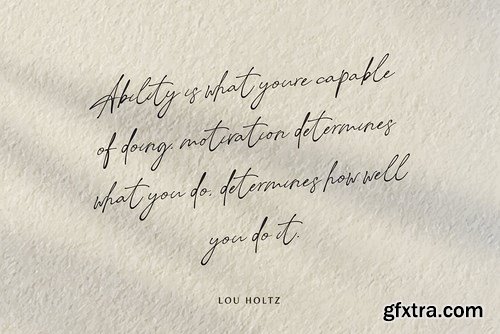 Ability is what youre capable
of doing. motivation determines
what you do. determines how well
you do it.
LOU HOLTZ
gfxtra.com